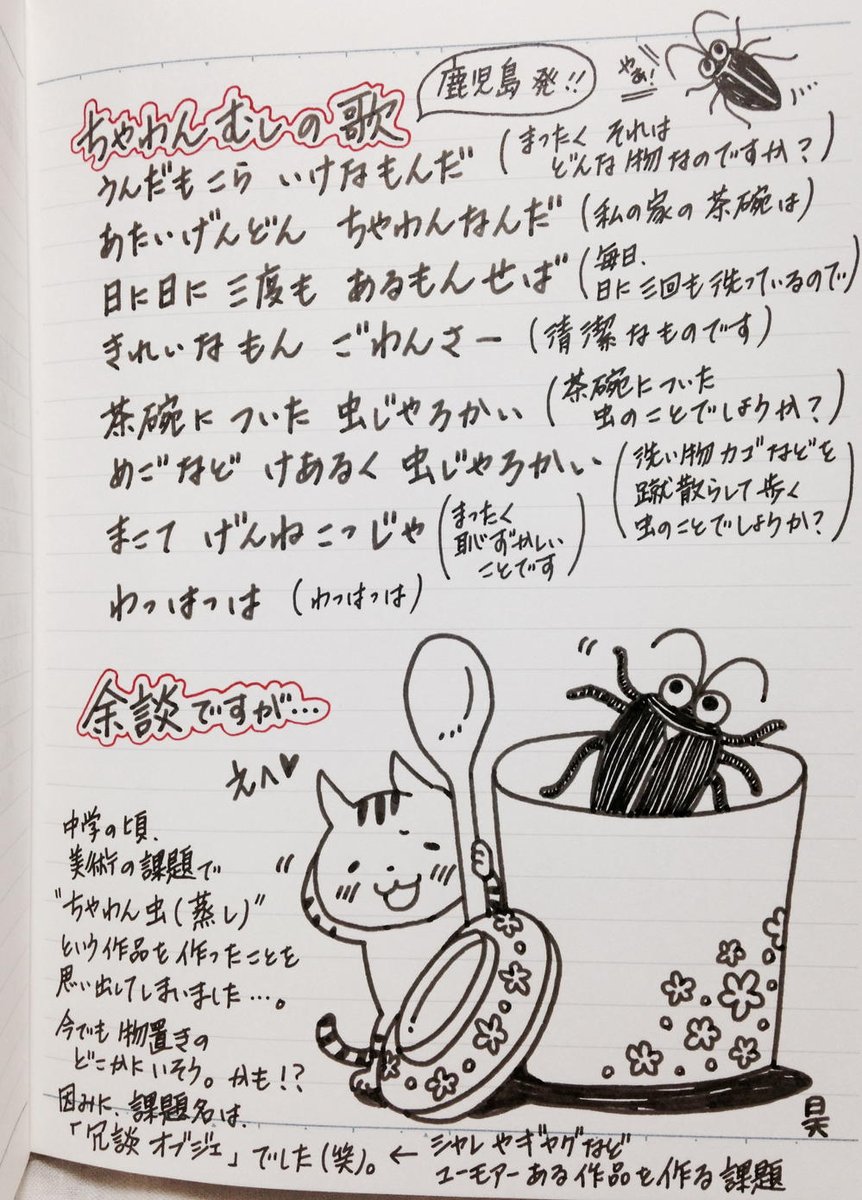 鹿児島発!!
やぁ!
ちゃわんむしの歌
うんだもこら いけなもんだ (まったく それは
どんな物なのですか?)
あたいげんどん ちゃわんなんだ (私の家の茶碗は)
日に日に三度も あるもんせば (毎日、
日に三回も洗っているので)
きれいなもん ごわんさー (清潔なものです)
茶碗に ついた 虫じゃろかい (茶碗についた
虫のことでしょうか?)
めごなど けあるく 虫じゃろかい (洗い物カゴなどを
蹴散らして歩く
虫のことでしょうか?)
まこて げんねこっじゃ (まったく
恥ずかしい
ことです)
わっはっは (わっはっは)
余談ですが…
えへ♥
中学の頃、
美術の課題で
"ちゃわん虫(蒸し)"
という作品を作ったことを
思い出してしまいました…。
今でも物置きの
どこかにいそう。かも!?
因みに、課題名は、
「冗談オブジェ」でした(笑)。 ← シャレやギャグなど
ユーモアーある作品を作る課題